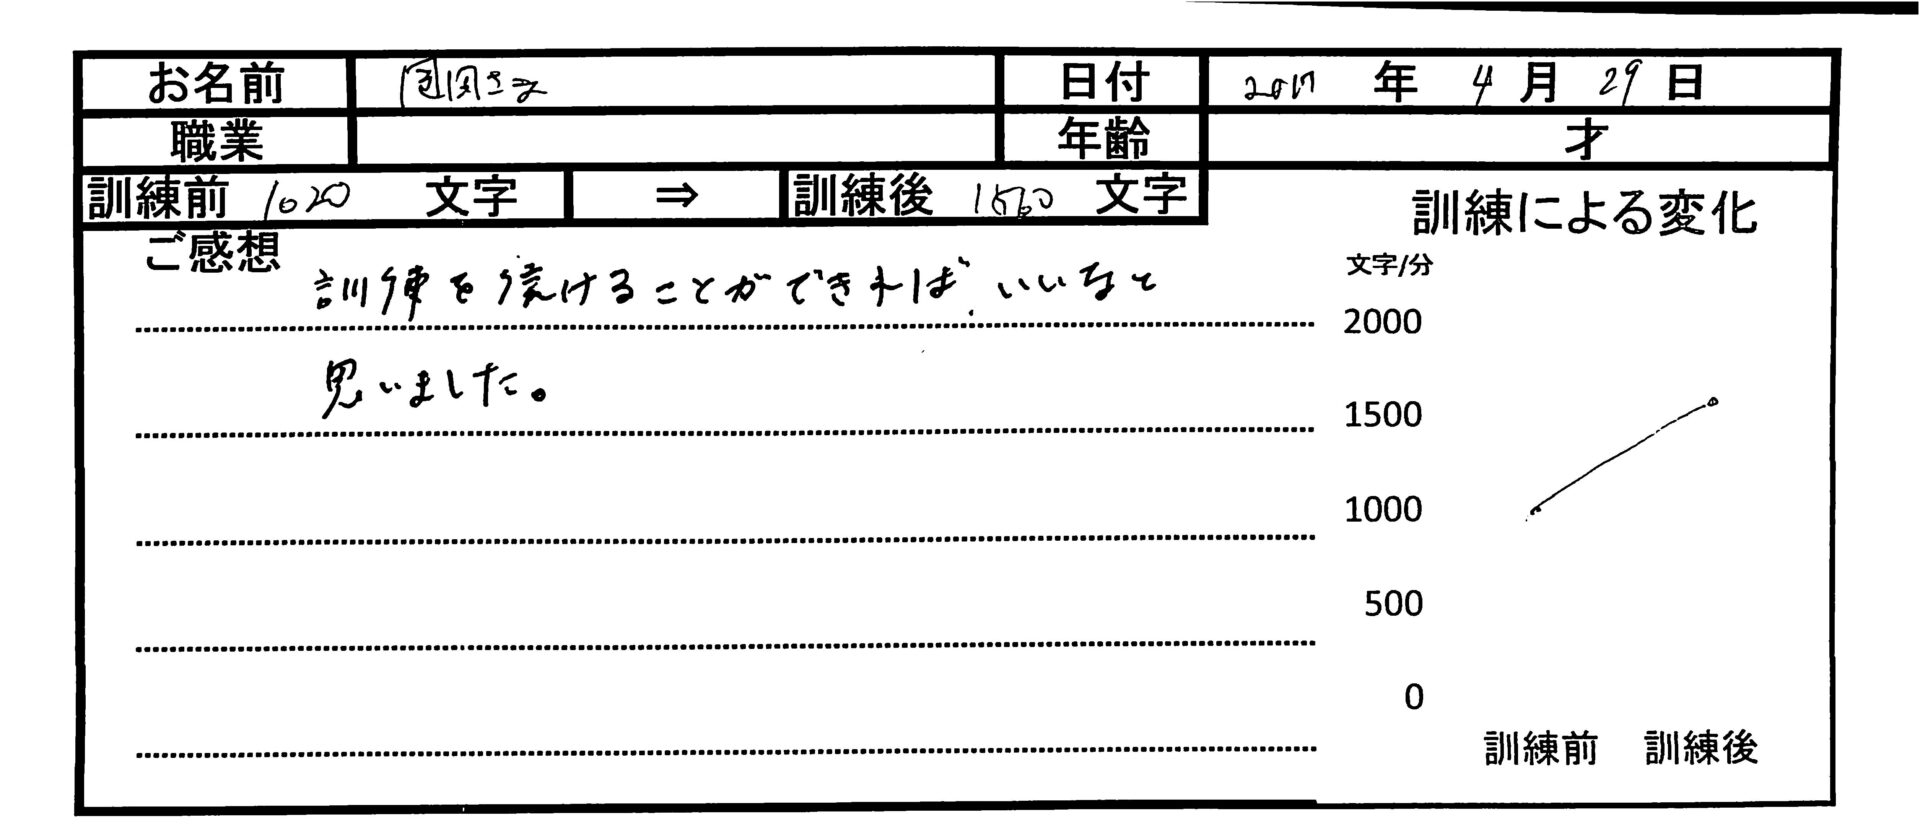 お名前 日付 2017 年 4 月 29 日
職業 年齢 才
訓練前 1020 文字 ⇒ 訓練後 1560 文字
訓練による変化
ご感想
訓練を続けることができれば、いいなと
思いました。
文字/分
2000
1500
1000
500
0
訓練前 訓練後